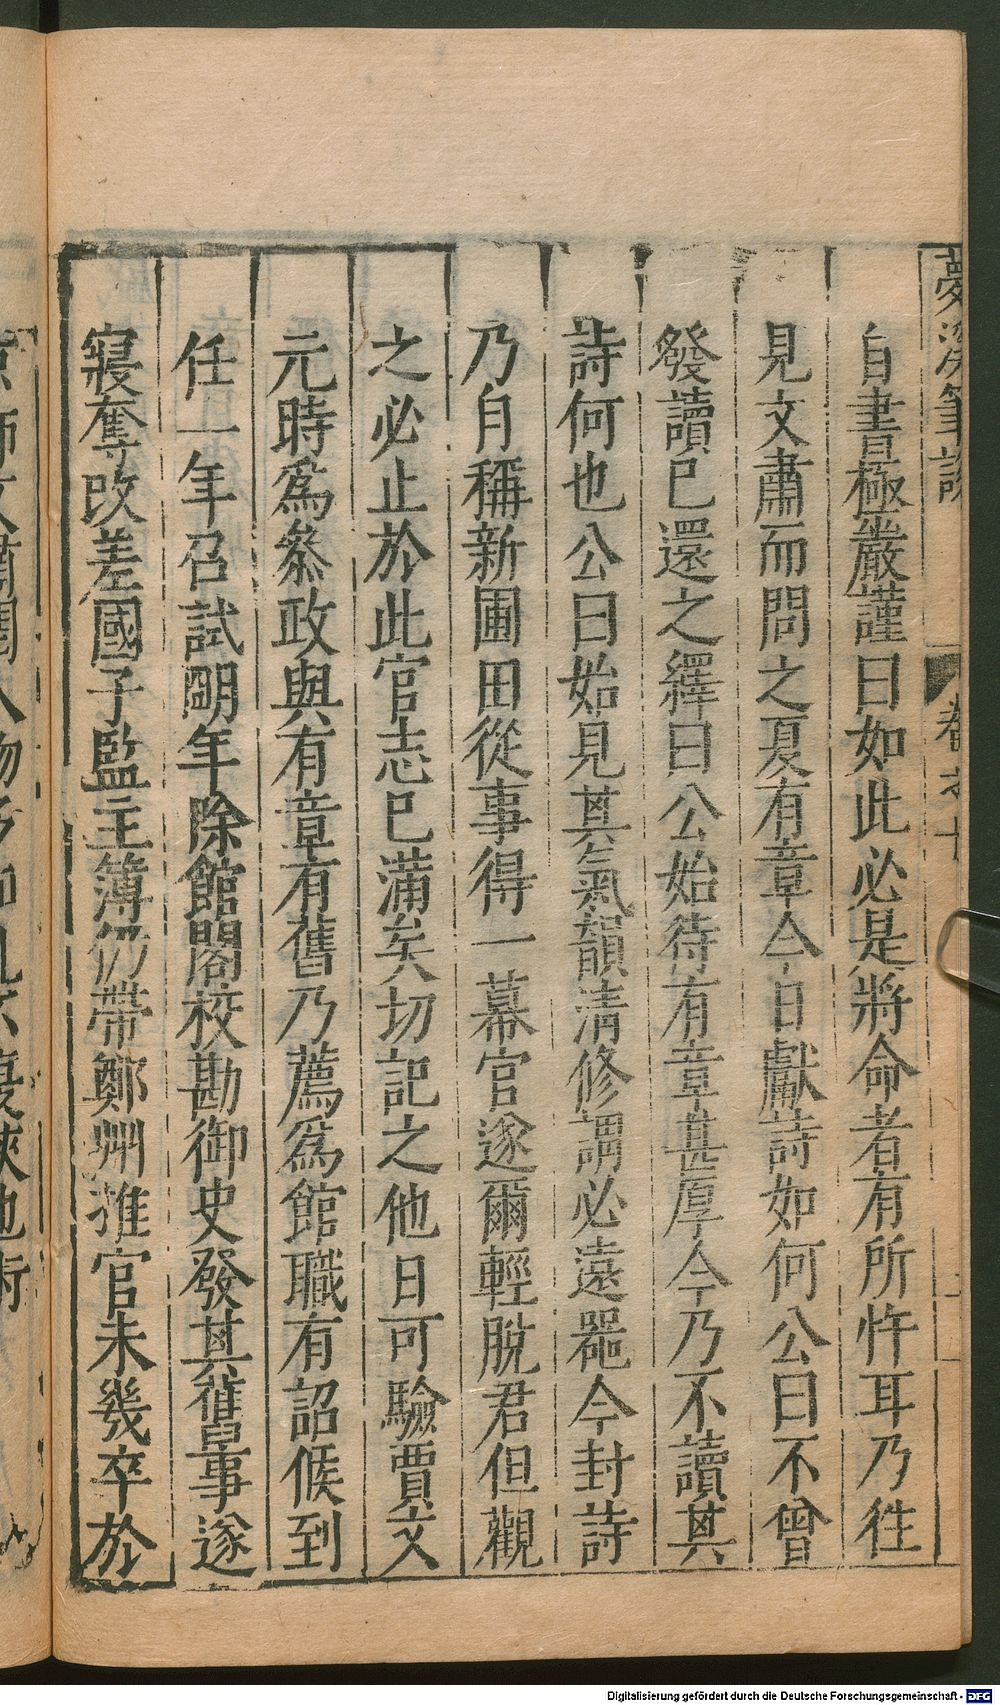 夢溪筆談
卷之十
自書極嚴謹曰如此必是將命者有所忤耳乃往
見文肅而問之夏有章今日獻詩如何公曰不曾
發讀已還之繹曰公始待有章甚厚今乃不讀其
詩何也公曰始見其氣韻清修謂必遠器今封詩
乃自稱新圃田從事得一幕官遂爾輕脫君但觀
之必止於此官志已滿矣切記之他日可驗賈文
元時爲叅政與有章有舊乃薦爲館職有詔候到
任一年召試明年除館閣校勘御史發其舊事遂
寢奪改差國子監主簿仍帶鄭州推官未幾卒於
Digitalisierung gefördert durch die Deutsche Forschungsgemeinschaft - DFG